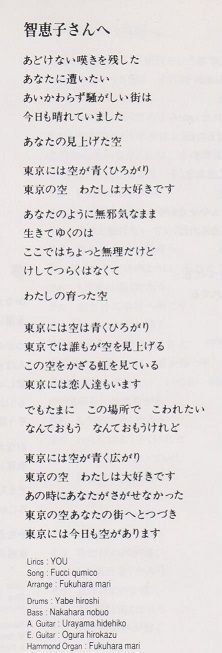 智恵子さんへ
あどけない嘆きを残した
あなたに遭いたい
あいかわらず騒がしい街は
今日も晴れていました
あなたの見上げた空
東京には空が青くひろがり
東京の空　わたしは大好きです
あなたのように無邪気なまま
生きてゆくのは
ここではちょっと無理だけど
けしてつらくはなくて
わたしの育った空
東京には空は青くひろがり
東京では誰もが空を見上げる
この空をかざる虹を見ている
東京には恋人達もいます
でもたまに　この場所で　こわれたい
なんておもう　なんておもうけれど
東京には空が青く広がり
東京の空　わたしは大好きです
あの時にあなたがさがせなかった
東京の空あなたの街へとつづき
東京には今日も空があります
Lirics : YOU
Song : Fucci qumico
Arrange : Fukuhara mari
Drums : Yabe hiroshi
Bass : Nakahara nobuo
A. Guitar : Urayama hidehiko
E. Guitar : Ogura hirokazu
Hammond Organ : Fukuhara mari